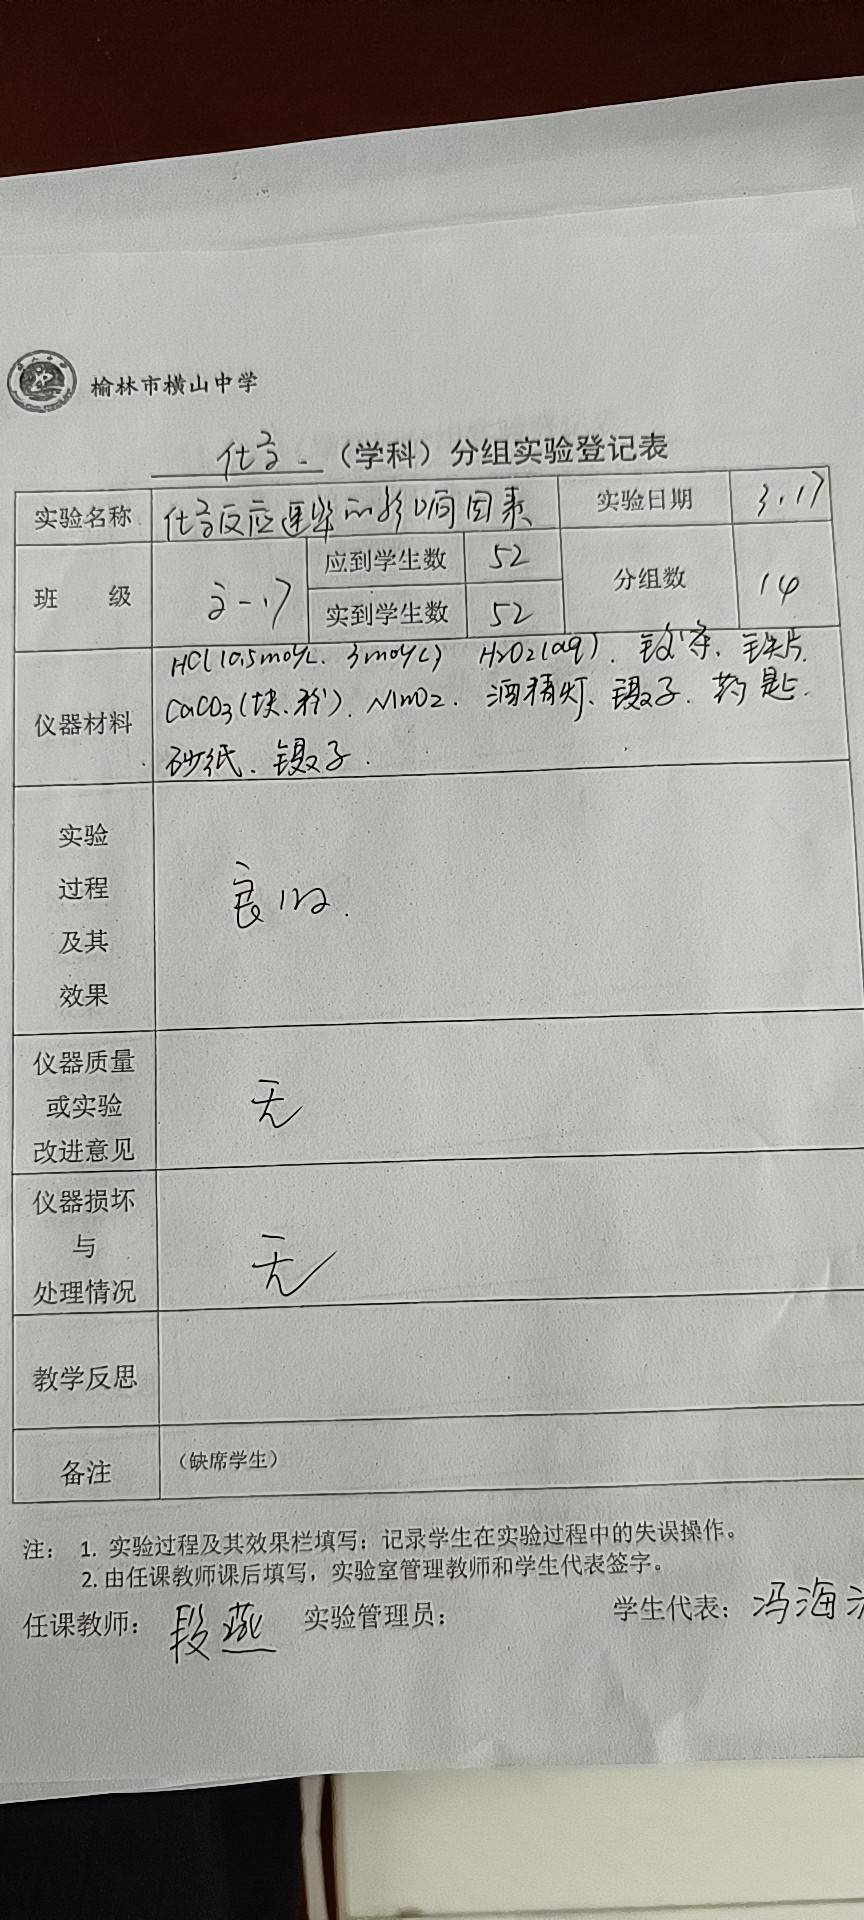 榆林市横山中学
化学（学科）分组实验登记表
实验名称 化学反应速率的影响因素 实验日期 3.17
班 级 应到学生数 52 分组数 14
实到学生数 52
仪器材料 HCl(0.5mol/L、3mol/L) H2O2(aq)、镁条、铁片、
CaCO3(块、粉)、MnO2、酒精灯、镊子、药匙、
砂纸、镊子.
实验
过程
及其
效果
良好.
仪器质量
或实验
改进意见
无
仪器损坏
与
处理情况
无
教学反思
备注 （缺席学生）
注： 1. 实验过程及其效果栏填写：记录学生在实验过程中的失误操作。
2. 由任课教师课后填写，实验室管理教师和学生代表签字。
任课教师： 段燕 实验管理员： 学生代表： 冯海